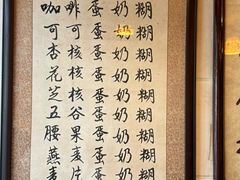 咖啡蛋奶糊
可可蛋奶糊
杏核蛋奶糊
花核蛋奶糊
芝核蛋奶糊
五谷蛋奶糊
腰果蛋奶糊
燕麦蛋奶糊
麦片蛋奶糊